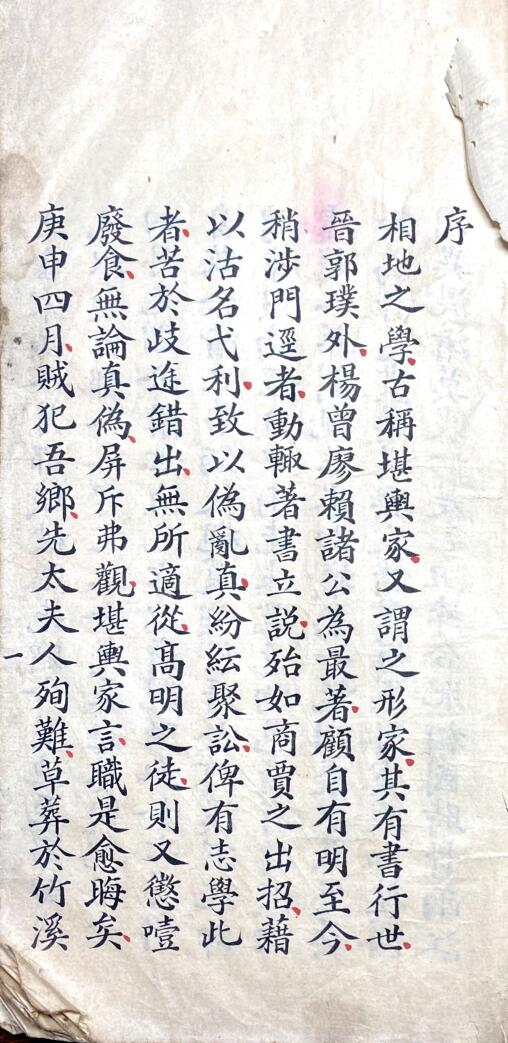 序
相地之學古稱堪輿家又謂之形家其有書行世
晉郭璞外楊曾廖賴諸公為最著顧自有明至今
稍涉門逕者動輒著書立説殆如商賈之出招藉
以沽名弋利致以偽亂真紛紜聚訟俾有志學此
者苦於歧途錯出無所適從髙明之徒則又懲噎
廢食無論真偽屏斥弗觀堪輿家言職是愈晦矣
庚申四月賊犯吾鄉先太夫人殉難草葬於竹溪
一